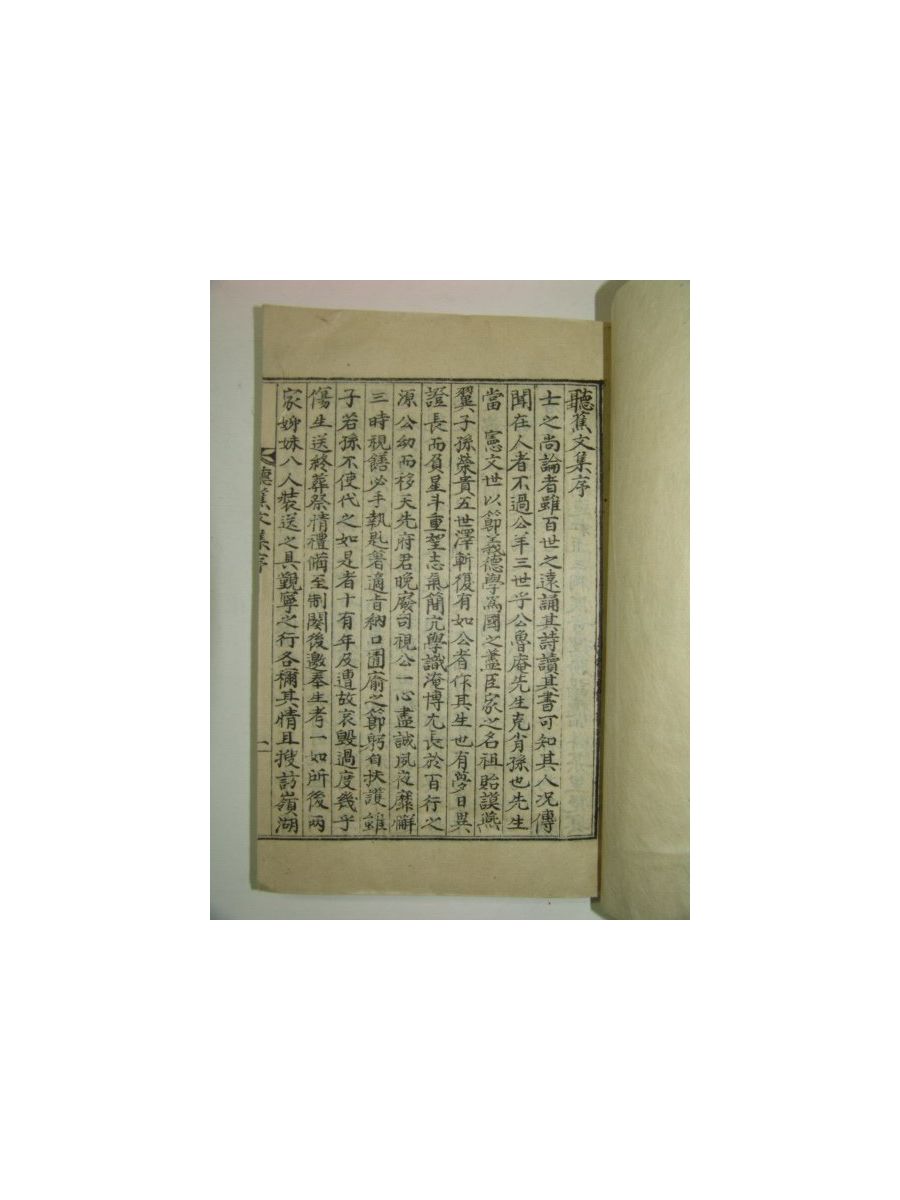 聽蕉文集序
士之尚論者雖百世之遠誦其詩讀其書可知其人况傳
聞在人者不過公羊三世乎公魯庵先生克肖孫也先生
當 憲文世以節義德學爲國之藎臣家之名祖貽謨燕
翼子孫榮貴五世澤斬復有如公者作其生也有夢日異
證長而負星斗重望志氣簡亢學識淹博尤長於百行之
源公幼而移天先府君晚廢司視公一心盡誠夙夜靡懈
三時視饍必手執匙箸適旨納口圊廁之節躬自扶護雖
子若孫不使代之如是者十有年及遭故哀毀過度幾乎
傷生送終葬祭情禮備至制闋後邀奉生考一如所後兩
家姊妹八人裝送之具觀寧之行各稱其情且搜訪嶺湖
聽蕉文集序 一